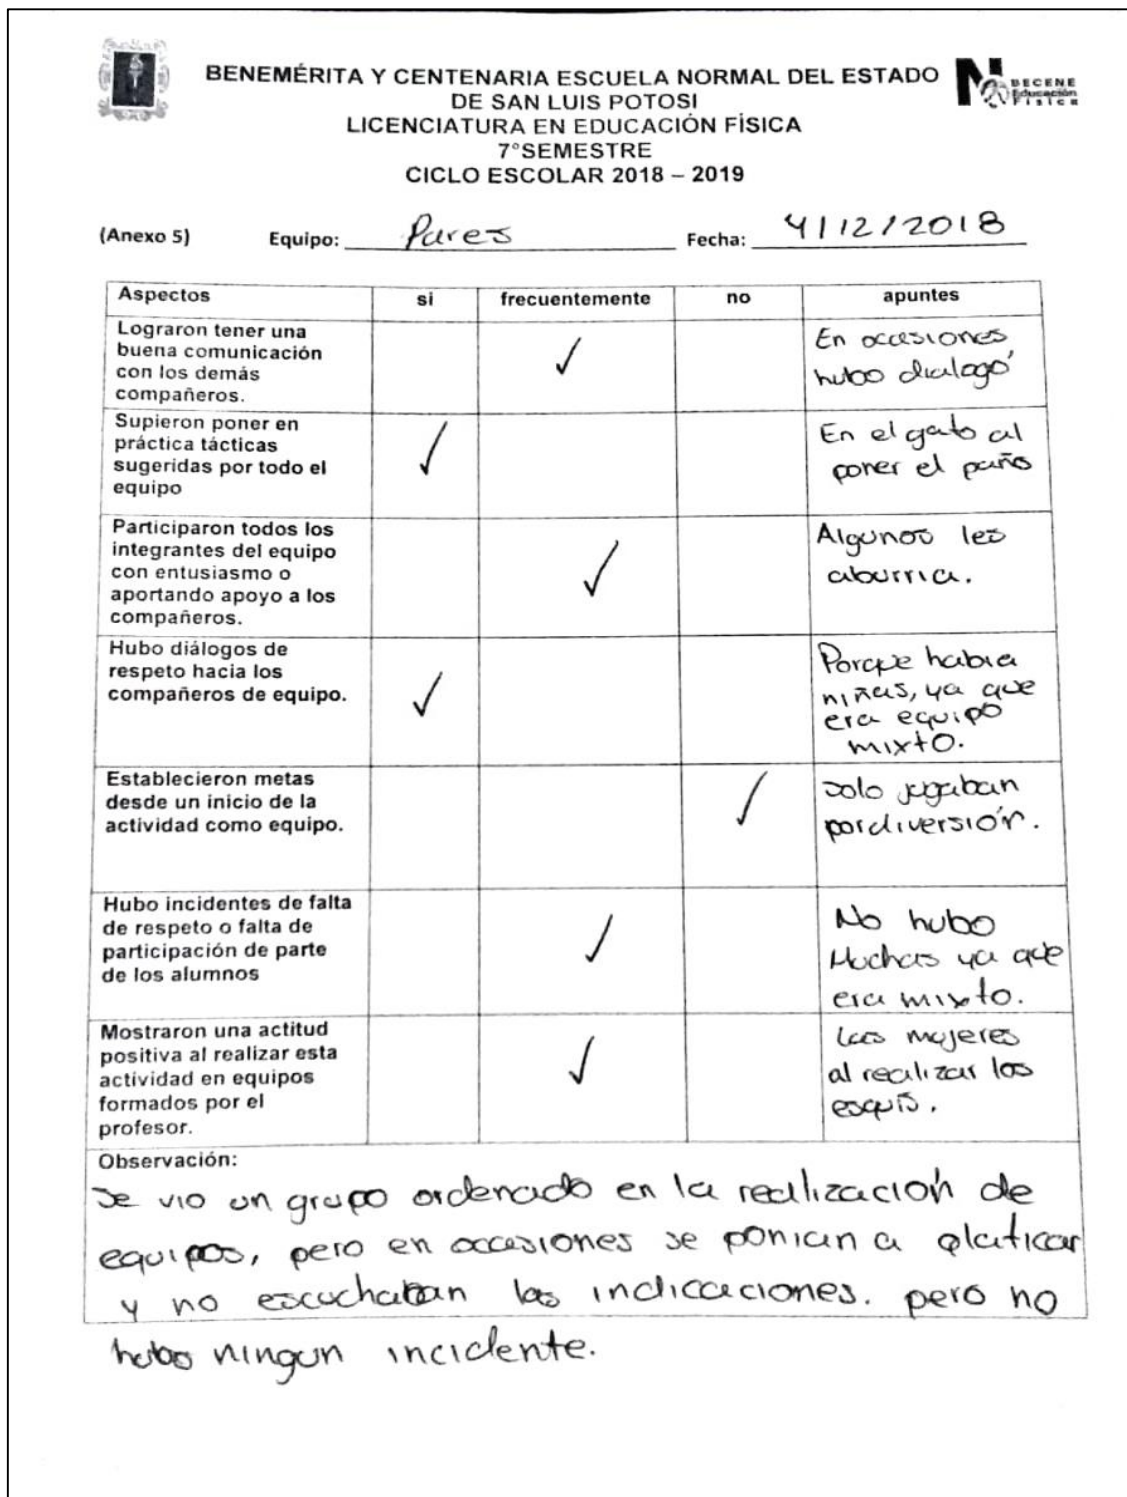 BENEMÉRITA Y CENTENARIA ESCUELA NORMAL DEL ESTADO
DE SAN LUIS POTOSI
LICENCIATURA EN EDUCACIÓN FÍSICA
7°SEMESTRE
CICLO ESCOLAR 2018 – 2019
BECENE
Educación
Física
(Anexo 5) Equipo: Pares Fecha: 4/12/2018
Aspectos si frecuentemente no apuntes
Lograron tener una
buena comunicación
con los demás
compañeros.
✓
En occasiones
hubo dialogó
Supieron poner en
práctica tácticas
sugeridas por todo el
equipo
✓
En el gato al
poner el paño
Participaron todos los
integrantes del equipo
con entusiasmo o
aportando apoyo a los
compañeros.
✓
Algunos les
aburria.
Hubo diálogos de
respeto hacia los
compañeros de equipo.
✓
Porque habia
niñas, ya que
era equipo
mixto.
Establecieron metas
desde un inicio de la
actividad como equipo.
✓
Solo jugaban
por diversión.
Hubo incidentes de falta
de respeto o falta de
participación de parte
de los alumnos
✓
No hubo
Muchas ya que
era mixto.
Mostraron una actitud
positiva al realizar esta
actividad en equipos
formados por el
profesor.
✓
Las mujeres
al realizar los
esquís.
Observación:
Se vio un grupo ordenado en la realización de
equipos, pero en occasiones se ponian a platicar
y no escuchaban las indicaciones. pero no
hubo ningun incidente.